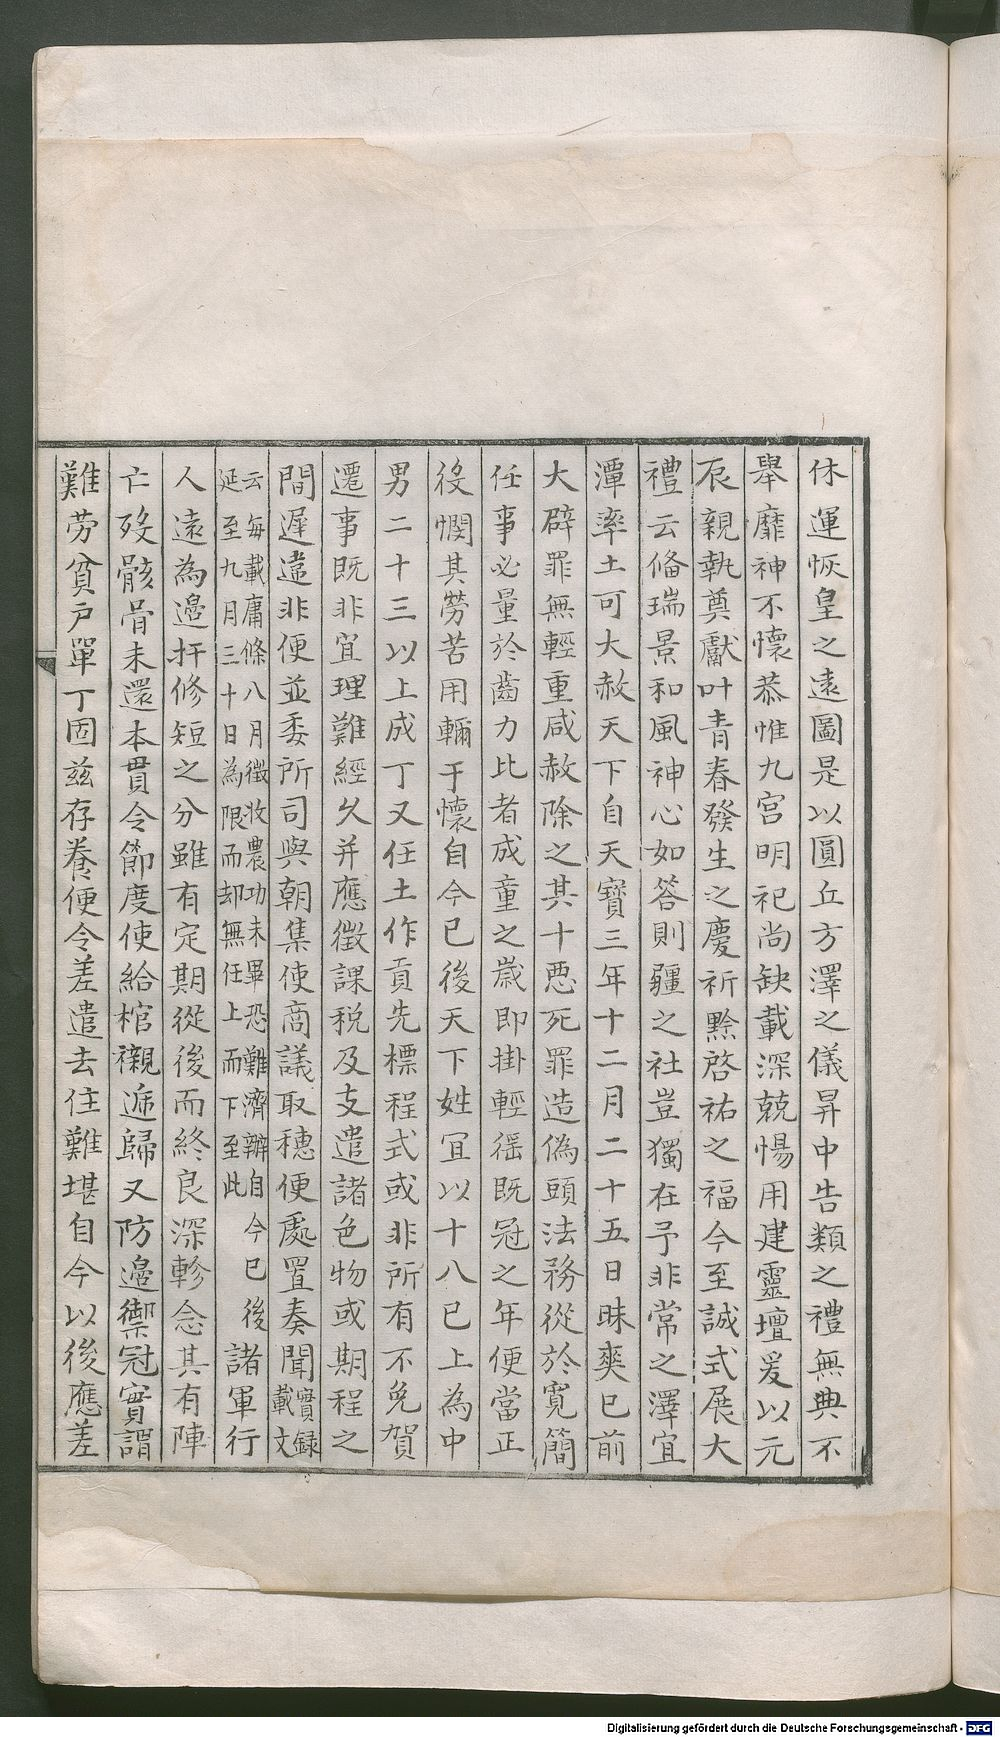 休運恢皇之遠圖是以圓丘方澤之儀昇中告類之禮無典不
舉靡神不懷恭惟九宫明祀尚缺載深兢惕用建靈壇爰以元
辰親執奠獻叶青春發生之慶祈黙啓祐之福今至誠式展大
禮云備瑞景和風神心如答則疆之社豈獨在予非常之澤宜
潭率土可大赦天下自天寶三年十二月二十五日昧爽已前
大辟罪無輕重咸赦除之其十惡死罪造偽頭法務從於寛簡
任事必量於齒力比者成童之歳即掛輕徭既冠之年便當正
役憫其勞苦用輙于懷自今已後天下姓宜以十八已上為中
男二十三以上成丁又任土作貢先標程式或非所有不免賀
遷事既非宜理難經久并應徵課税及支遣諸色物或期程之
間遲違非便並委所司與朝集使商議取穏便處置奏聞實録載文
云每載庸條八月徵收農功未畢恐難濟辦自今已後延至九月三十日為限而却無任上而下至此諸軍行
人遠為邊扞修短之分雖有定期從後而終良深軫念其有陣
亡歿骸骨未還本貫令節度使給棺襯逓歸又防邊禦冦實謂
難劳貧戸單丁固兹存養便令差遣去住難堪自今以後應差
Digitalisierung gefördert durch die Deutsche Forschungsgemeinschaft - DFG